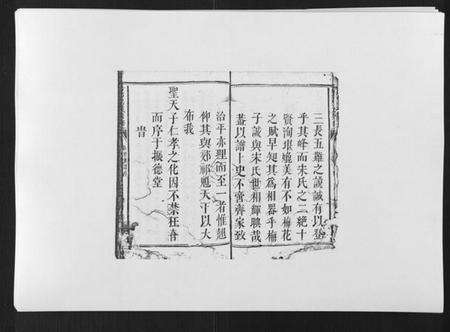 三長五難之議誠有以登
乎其峰而宋氏之二絕十
賢洵堪媲美有不如梅花
之賦早見其為相器乎梅
子誠與宋氏世相輝映哉
蓋以譜十史不啻齊家致
治平亦理而至一者惟翹
仰其與郊祁魁天下以大
布我
聖天子仁孝之化因不禁狂言
而序于樹德堂
旹